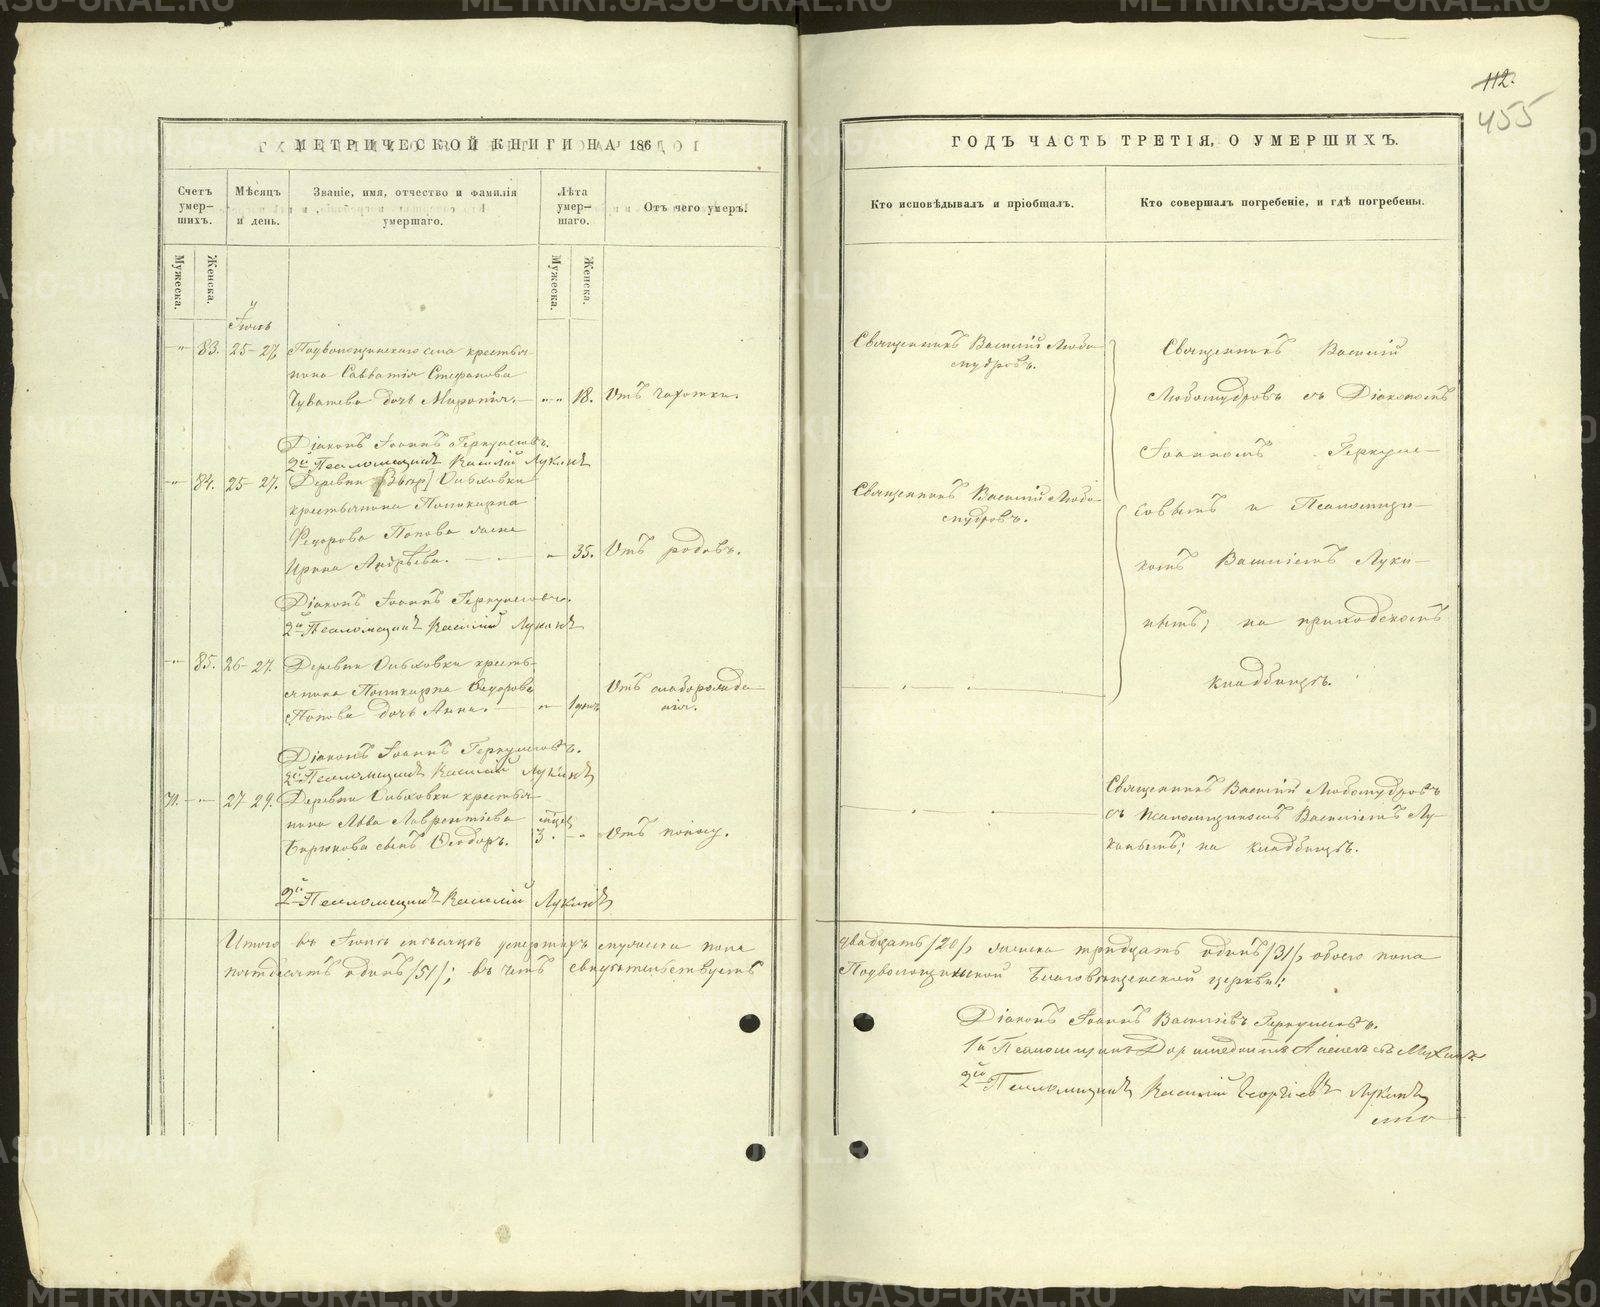 112.
455
МЕТРИЧЕСКОЙ КНИГИ НА 186
ГОДЪ ЧАСТЬ ТРЕТІЯ, О УМЕРШИХЪ.
Счетъ умер–шихъ.
Мѣсяцъ и день.
Званіе, имя, отчество и фамилія умершаго.
Лѣта умер–шаго.
Отъ чего умеръ.
Кто исповѣдывалъ и пріобщалъ.
Кто совершалъ погребеніе, и гдѣ погребены.
Мужеска.
Женска.
Мужеска.
Женска.
Іюль
83. 25–27. Подволошинскаго села крестья–
нина Савватія Стефанова
Чувашева дочь Миропія. 18. Отъ чахотки.
Священникъ Василій Любо–
мудровъ.
Діаконъ Іоаннъ Геркулесовъ.
2й Псаломщикъ Василій Лукинъ
84. 25–27. Деревни Ольховки
крестьянина Поликарпа
Ѳедорова Попова жена
Ирина Андрѣева. 35. Отъ родовъ.
Священникъ Василій Любо–
мудровъ.
Діаконъ Іоаннъ Геркулесовъ.
2й Псаломщикъ Василій Лукинъ
85. 26–27. Деревни Ольховки кресть–
янина Поликарпа Ѳедорова
Попова дочь Анна. 1 день Отъ слаборожде–
нія.
Священникъ Василій
Любомудровъ съ Діакономъ
Іоанномъ Геркуле–
совымъ и Псаломщи–
комъ Василіемъ Луки–
нымъ; на приходскомъ
кладбищѣ.
Діаконъ Іоаннъ Геркулесовъ.
2й Псаломщикъ Василій Лукинъ
71. 27–29. Деревни Ольховки крестья–
нина Льва Лаврентіева
Бирюкова сынъ Ѳеодоръ. 3. Отъ поносу.
Священникъ Василій Любомудровъ
съ Псаломщикомъ Василіемъ Лу–
кинымъ; на кладбищѣ.
2й Псаломщикъ Василій Лукинъ
Итого въ Іюлѣ мѣсяцѣ умершихъ мужеска пола
двадцать /20/, женска тридцать одинъ /31/, обоего пола
пятдесятъ одинъ /51/; въ чемъ свидѣтельствуемъ
Подволошинской Благовѣщенской церкви:
Діаконъ Іоаннъ Василіевъ Геркулесовъ.
1й Псаломщикъ
2й Псаломщикъ Василій Георгіевъ Лукинъ
METRIKI.GASO-URAL.RU